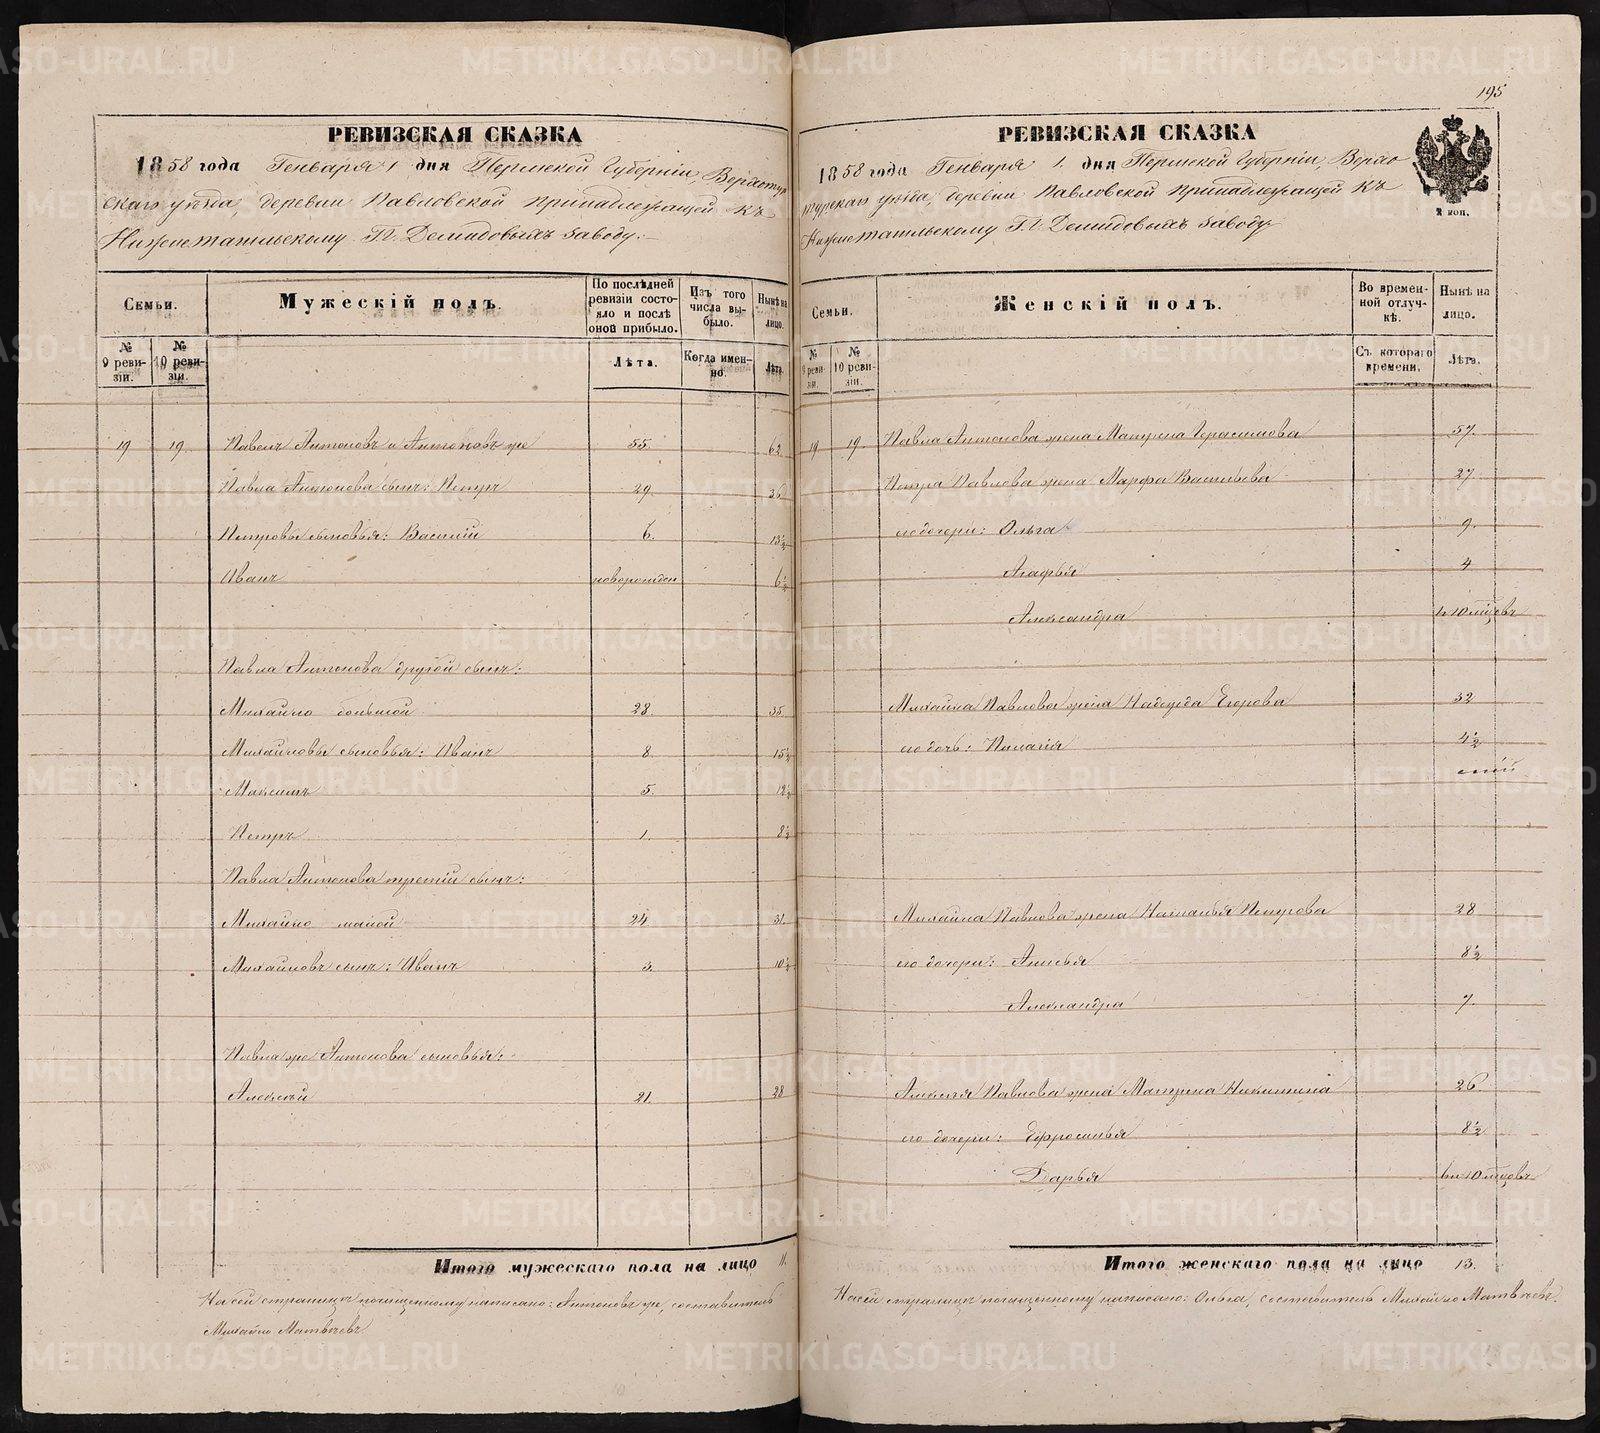 195
РЕВИЗСКАЯ СКАЗКА
1858 года Генваря 1 дня Пермской Губернiи, Верхотур
скаго уѣзда, деревни Павловской принадлежащей къ
Нижнетагильскому Г.г. Демидовыхъ заводу.
Семьи.
Мужескiй полъ.
По послѣдней ревизiи состояло и послѣ оной прибыло.
Изъ того числа выбыло.
Нынѣ на лицо.
№ 9 ревизiи.
№ 10 ревизiи.
Лѣта.
Когда именно.
Лѣта.
19 19 Павелъ Антоновъ и Антоновъ же 55. 62
Павла Антонова сынъ: Петръ 29. 36
Петровы сыновья: Василiй 6. 13½
Иванъ новорожден 6½
Павла Антонова другой сынъ:
Михайло большой 28. 35
Михайловы сыновья: Иванъ 8. 15½
Максимъ 5. 12½
Петръ 1. 8½
Павла Антонова третiй сынъ:
Михайло малой 24. 31
Михайловъ сынъ: Иванъ 3. 10½
Павла же Антонова сыновья:
Алексѣй 21. 28
Итого мужескаго пола на лицо 11.
На сей страницѣ почищенному написано: Антоновъ же, составитель
Михайло Матвѣевъ
РЕВИЗСКАЯ СКАЗКА
1858 года Генваря 1. дня Пермской Губернiи, Верхо
турскаго уѣзда, деревни Павловской принадлежащей къ
Нижнетагильскому Г.г. Демидовыхъ заводу
2 коп.
Семьи.
Женскiй полъ.
Во временной отлучкѣ.
Нынѣ на лицо.
№ 9 ревизiи.
№ 10 ревизiи.
Съ котораго времени.
Лѣта.
19 19. Павла Антонова жена Матрена Герасимова 57.
Петра Павлова жена Марфа Васильева 27
его дочери: Ольга 9.
Агафья 4
Александра 10 мѣсцовъ
Михайла Павлова жена Надежда Егорова 32
его дочь: Палагiя 4½
Михайла Павлова жена Наталья Петрова 28
его дочери: Анисья 8½
Александра 7.
Алексѣя Павлова жена Матрена Никитина 26
его дочери: Ефросинья 8½
Дарья 10 мѣсцовъ
Итого женскаго пола на лицо 13.
На сей страницѣ почищенному написано: Ольга, составитель Михайло Матвѣевъ.
METRIKI.GASO-URAL.RU